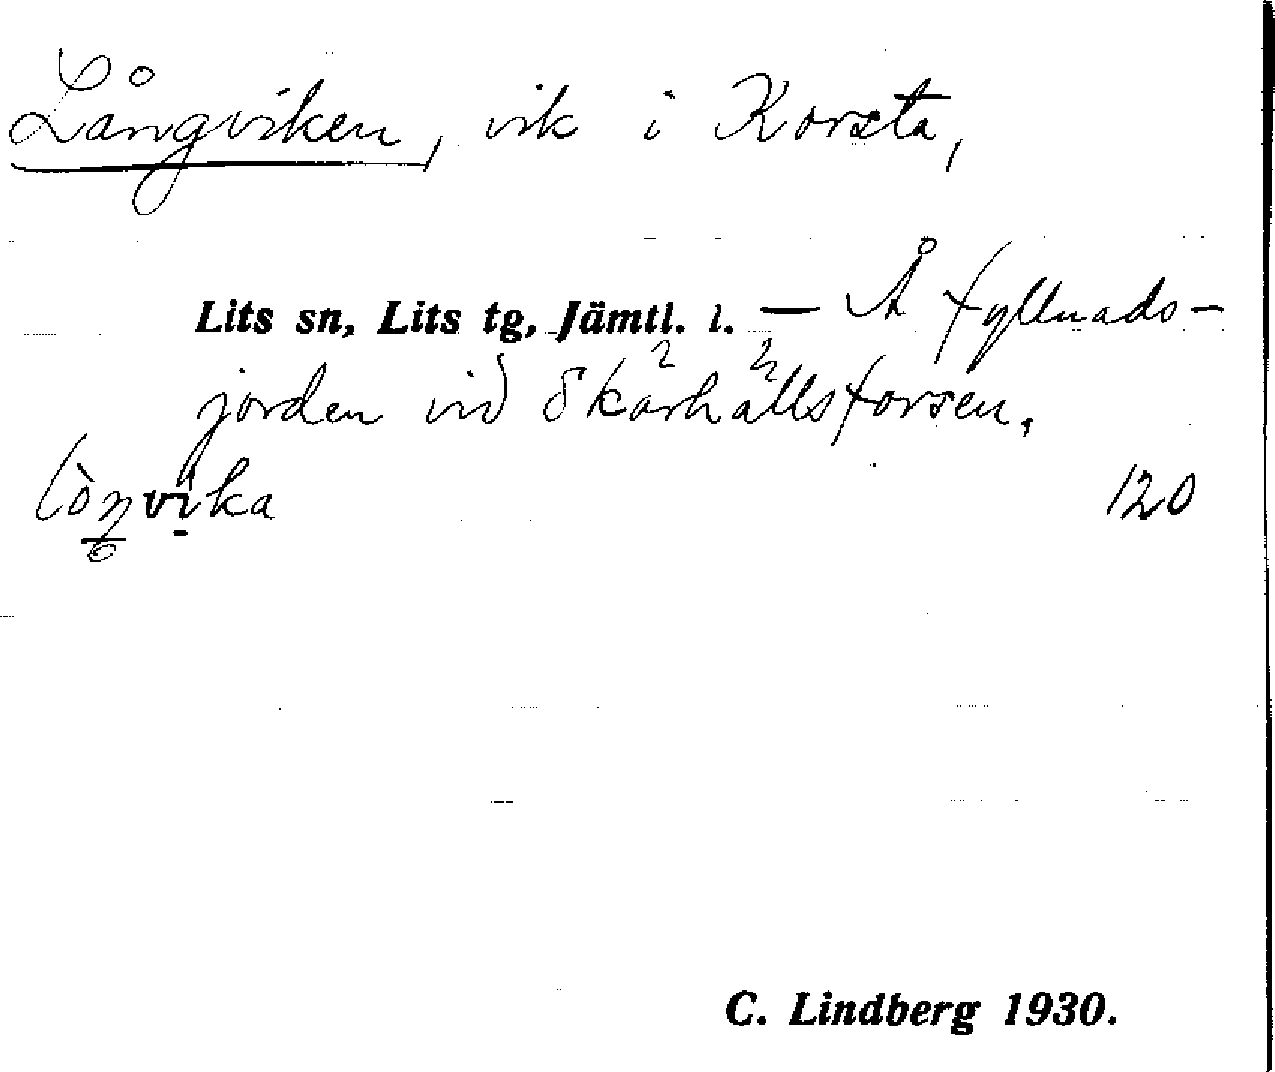 Långviken, vik i Korsta,
Lits sn, Lits tg, Jämtl. l. — Å fyllnads-
jorden vid Skärhällsforsen.
120
C. Lindberg 1930.